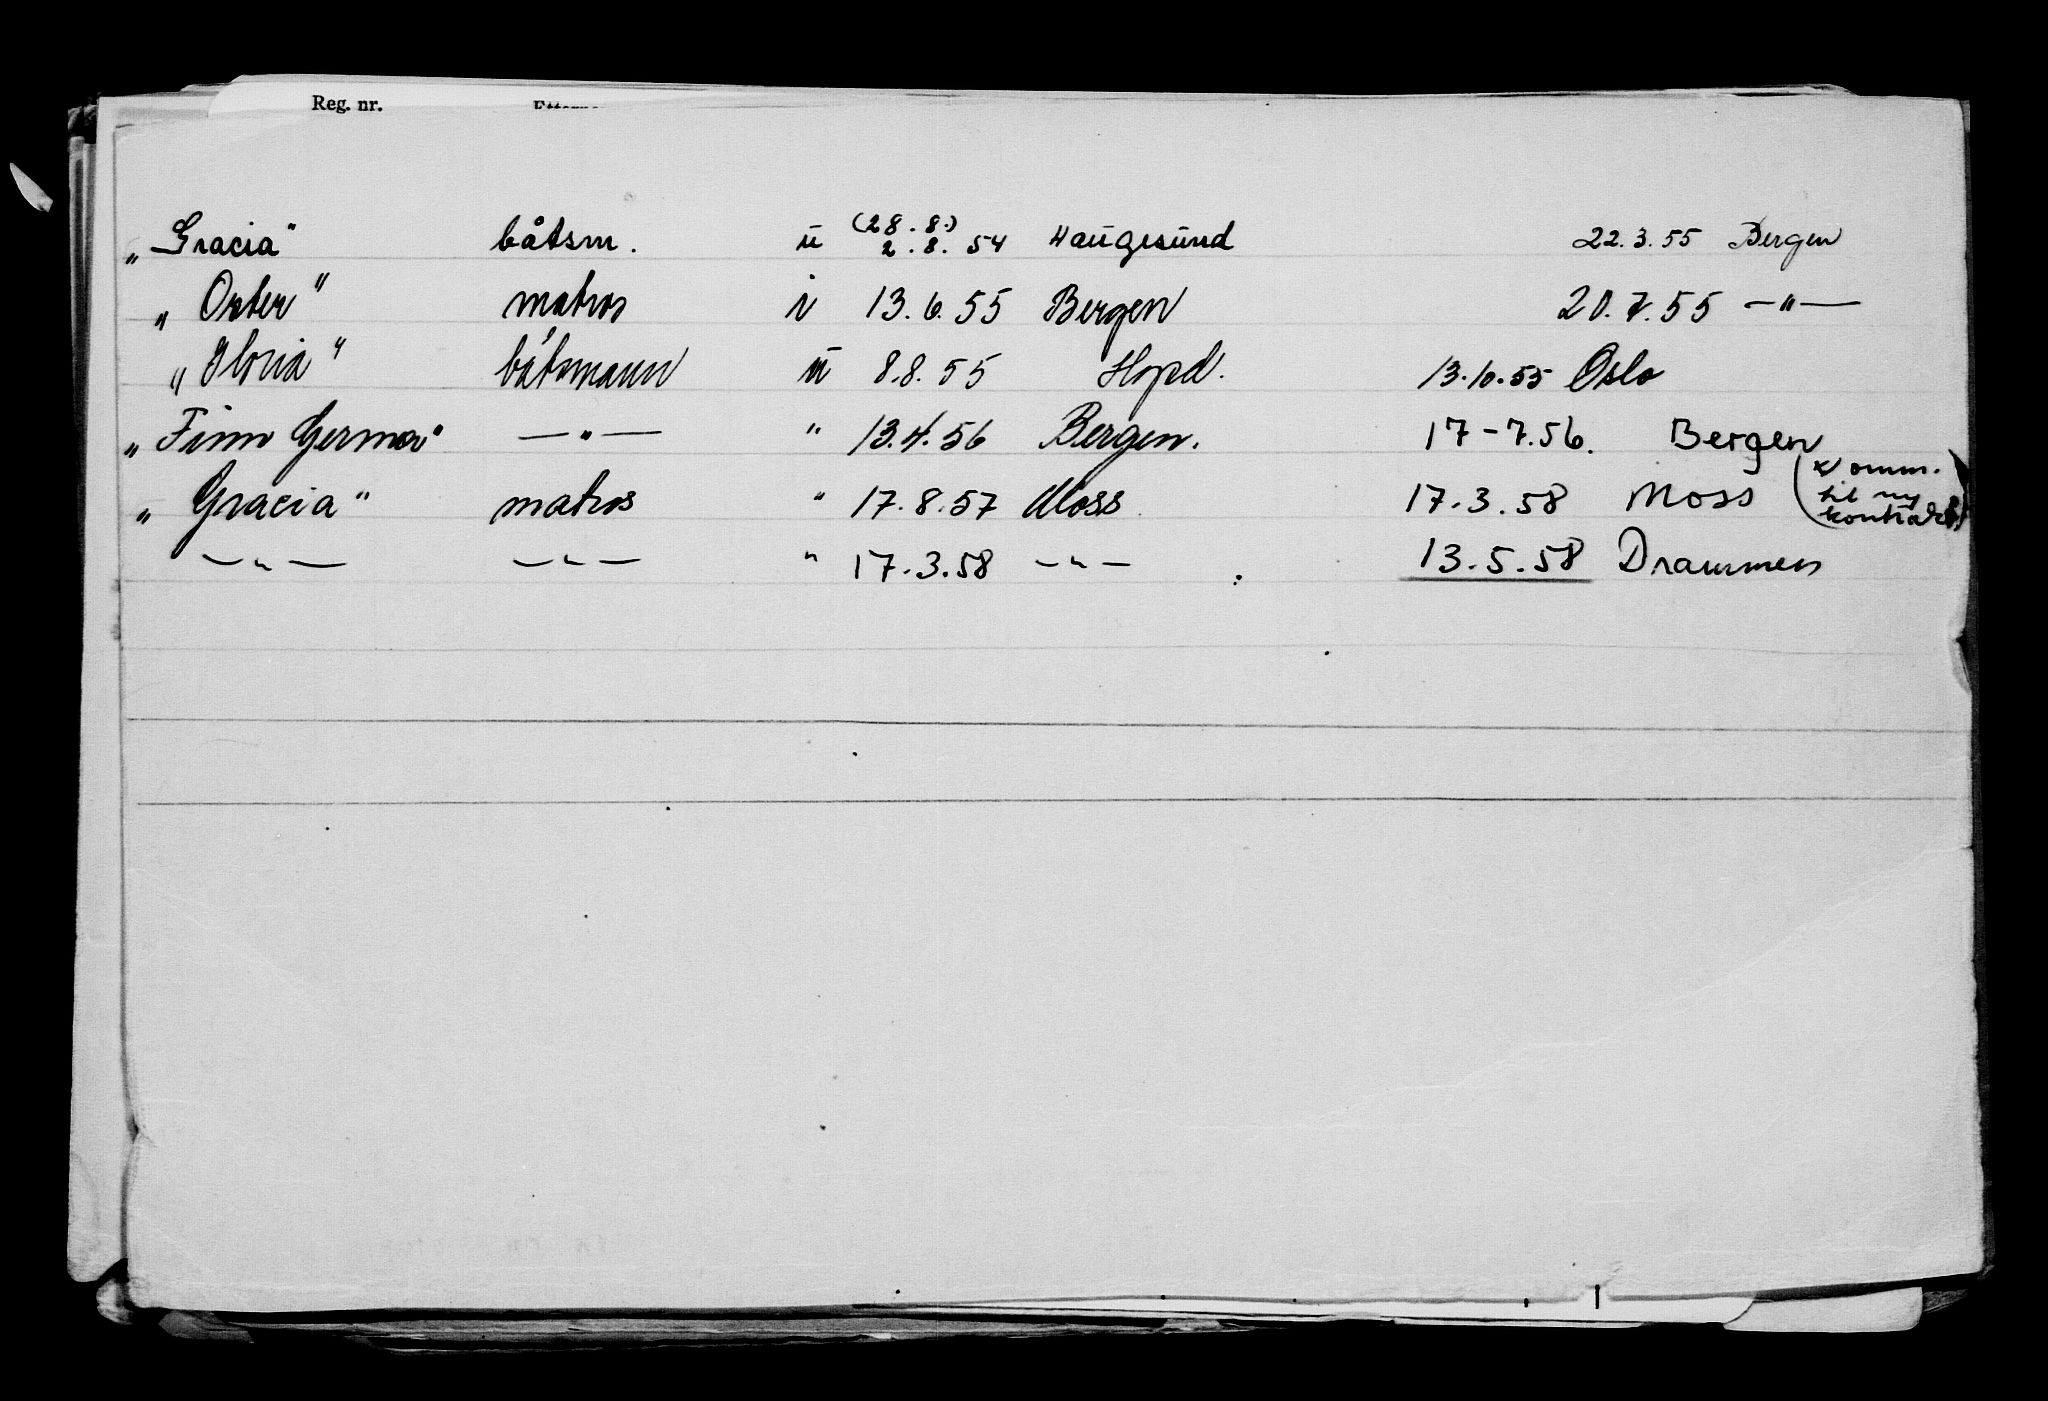 Reg. nr.
„Gracia" båtsm. u (28.8.) 2.8.54 Haugesund 22.3.55 Bergen
„Oster" matros i 13.6.55 Bergen 20.7.55 —"—
„Gloria" båtsmann u 8.8.55 13.10.55 Oslo
„Finn Germa" —"— " 13.4.56 Bergen. 17-7.56. Bergen
„Gracia" matros " 17.8.57 Moss 17.3.58 Moss (Komm. til ny kontrakt)
—"— —"— " 17.3.58 —"— 13.5.58 Drammen